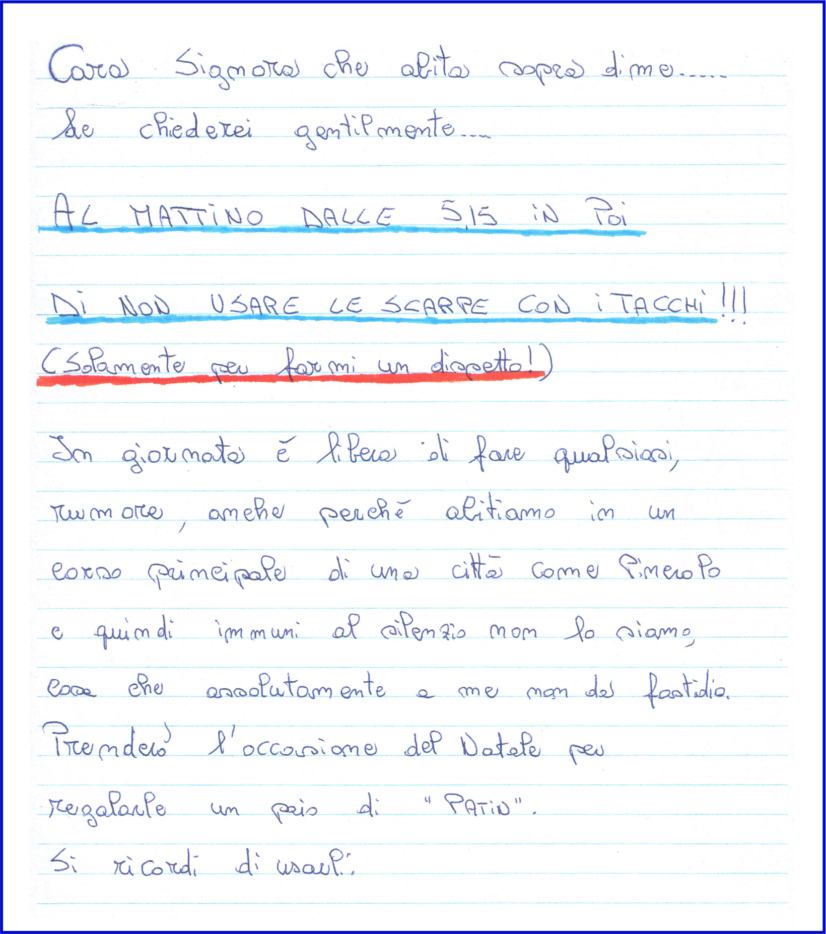 Cara Signora che abita sopra di me......
Le chiederei gentilmente....
AL MATTINO DALLE 5,15 iN Poi
Di NON USARE LE SCARPE CON i TACCHi!!!
(Solamente per farmi un dispetto!)
In giornata é libera di fare qualsiasi,
rumore, anche perché abitiamo in un
corso principale di una città come Pinerolo
e quindi immuni al silenzio non lo siamo,
cosa che assolutamente a me non da fastidio.
Prenderò l'occasione del Natale per
regalarle un paio di "PATiN".
Si ricordi di usarli.